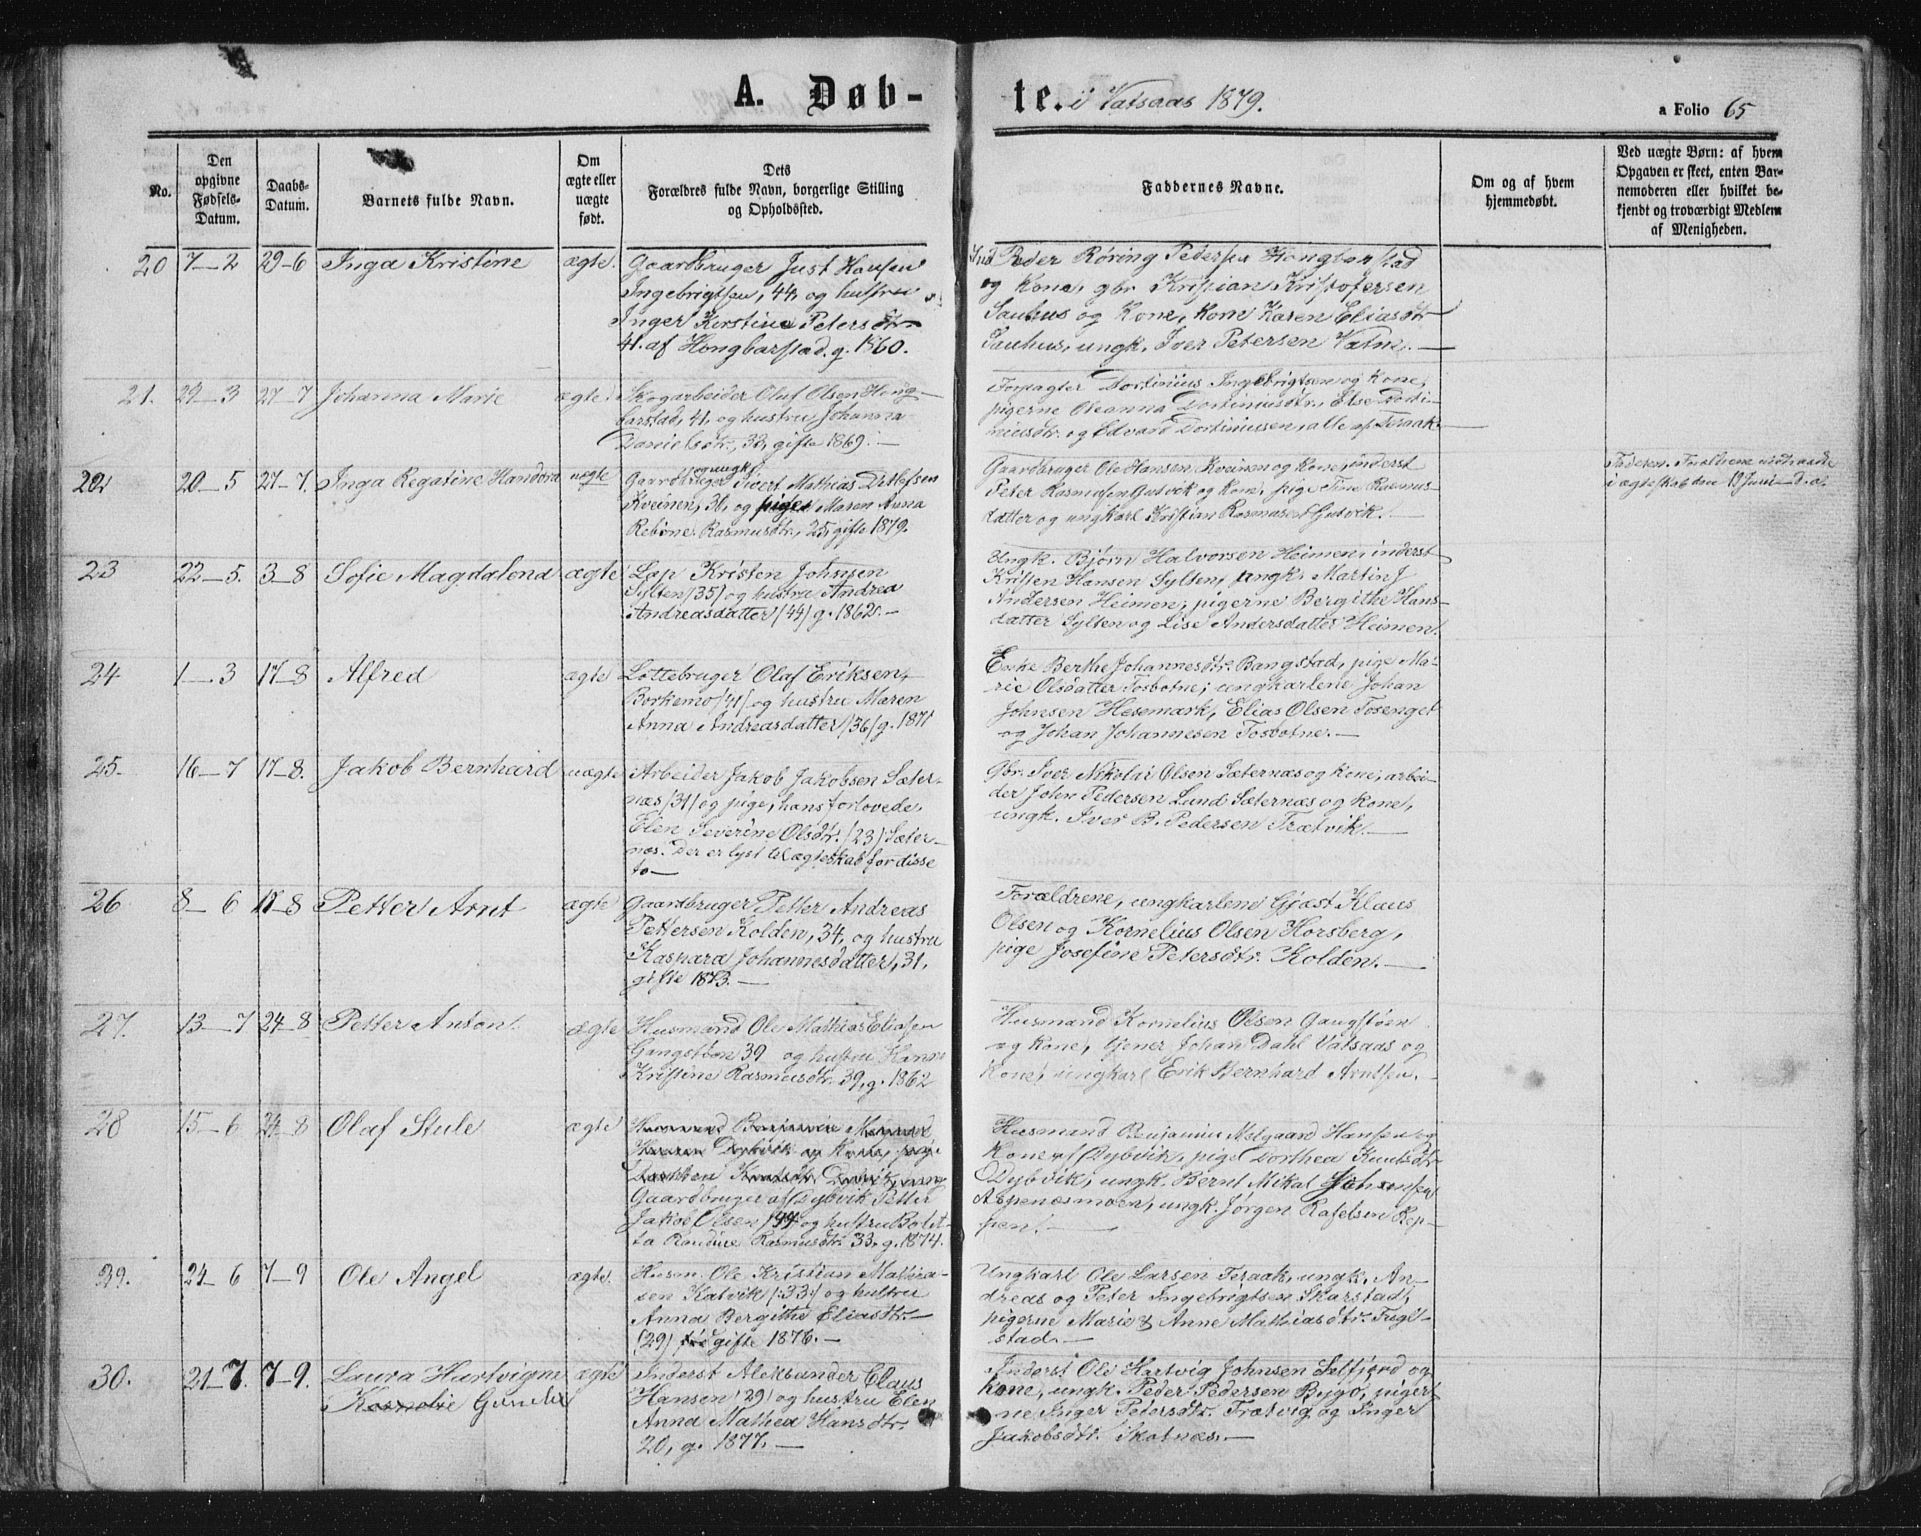 A. Døb-
te. i Vatsaas 1879.
a Folio 65
No.
Den opgivne Fødsels-Datum.
Daabs-Datum.
Barnets fulde Navn.
Om ægte eller uægte født.
Dets Forældres fulde Navn, borgerlige Stilling og Opholdssted.
Faddernes Navne.
Om og af hvem hjemmedøbt.
Ved uægte Børn: af hvem Opgaven er skeet, enten Barnemoderen eller hvilket bekjendt og troværdigt Medlem af Menigheden.
20 7-2 29-6 Inga Kristine ægte.
Gaardbruger Just Hansen
Ingebrigtsen, 44, og hustru
Inger Kirstine Petersdtr
41. af Hongbarstad. g. 1860.
Peder Röring Pedersen Hongbarstad
og Kone, gbr. Kristian Kristofersen
Sauhus og Kone, Kone Karen Eliasdtr
Sauhus, ungk. Iver Petersen Vatne.
21. 29-3 27-7 Johanna Marie ægte
Skogarbeider Oluf Olsen Hong-
barstad, 41, og hustru Johanna
Danielsdtr., 33, gifte 1869.
Forpagter Dortinius Ingebrigtsen og Kone,
pigerne Oleanna Dortiniusdtr., Else Dorti-
niusdtr. og Edvard Dortiniussen, alle af Teraak.
22. 20-5 27-7. Inga Regatine Handora uægte
Gaardbruger og ungk. Sivert Mathias Detlefsen
Kveinen, 36, og pige Maren Anna
Rebine Rasmusdtr., 25, gifte 1879.
Gaardbruger Ole Hansen Kveinen og Kone, inderst
Peter Rasmussen Gutvik og Kone, pige Tine Rasmus-
datter og ungkarl Kristian Rasmussen Gutvik.
Faderen. Forældrene indtraadte
i ægteskab den 19 Juni d.a.
23 22-5. 3-8 Sofie Magdalena ægte
Lap Kristen Johnsen
Sylten (35) og hustru Andrea
Andreasdatter (44) g. 1862.
Ungk. Bjørn Halvorsen Heimen, inderst
Kristen Hansen Sylten, ungk. Martin J
Andersen Heimen; pigerne Bergithe Hans-
datter Sylten og Lise Andersdatter Heimen.
24 1-3 17-8 Alfred ægte
Lottebruger Olaf Eriksen,
Borkemo (41) og hustru Maren
Anna Andreasdatter (36) g. 1871
Enke Berthe Johannesdtr. Bangstad, pige Ma-
rie Olsdatter Tosbotne; ungkarlene Johan
Johnsen Hesemark, Elias Olsen Tosenget
og Johan Johannesen Tosbotne.
25. 16-7 17-8. Jakob Bernhard uægte
Arbeider Jakob Jakobsen Sæter-
næs (31) og pige, hans forlovede,
Elen Severine Olsdtr. (23) Sæter-
næs. Der er lyst til ægteskab for disse
to
Gbr. Iver Nikolai Olsen Sæternæs og Kone, arbei-
der John Pedersen Lund Sæternæs og Kone,
ungk. Iver B. Pedersen Trætvik.
26 8-6 17-8 Petter Arnt ægte
Gaardbruger Petter Andreas
Pettersen Kolden, 34, og hustru
Kaspara Johannesdatter, 31,
gifte 1873.
Forældrene, ungkarlene Gjøst Klaus
Olsen og Kornelius Olsen Horsberg,
pige Josefine Petersdtr. Kolden.
27. 13-7 24-8 Petter Anton. ægte
Husmand Ole Mathias Eliasen
Gangstøen 39 og hustru Hanna
Kristine Rasmusdtr. 39, g. 1862
Husmand Kornelius Olsen Gangstøen
og Kone, tjener Johan Dahl Vatsaas og
Kone, ungkarl Erik Bernhard Arntsen.
28 15-6 24-8 Olaf Stule ægte
Gaardbruger af Dybvik Petter
Jakob Olsen (44) og hustru Berit-
ta Randine Rasmusdtr. 33. g. 1874.
Husmand Benjamin Melgaard Hansen og
Kone af Dybvik, pige Dorthea Knutsdtr
Dybvik, ungk. Bernt Mikal Johansen
Aspenesmoen, ungk. Jørgen Rafelsen Rep-
pen.
29. 24-6 7-9 Ole Angel ægte.
Husm. Ole Kristian Mathia-
sen Kalvik (33) og hustru
Anna Bergitha Eliasdtr.
(29) gifte 1876.
Ungkarl Ole Larsen Teraak, ungk. An-
dreas og Peter Ingebrigtsen Skarstad,
pigerne Marie & Anne Mathiasdtr. Fugl-
stad.
30. 21-7. 7-9. Laura Hartvigne ægte
Kornelie Gurine
Inderst Aleksander Claus
Hansen (29) og hustru Elen
Anna Mathea Hansdtr.
20, g. 1877.
Inderst Ole Hartvig Johnsen Selfjord og
Kone, ungk. Peder Pedersen Bygo, piger-
ne Inger Petersdtr. Trætvig og Inger
Jakobsdtr. Skotnæs.